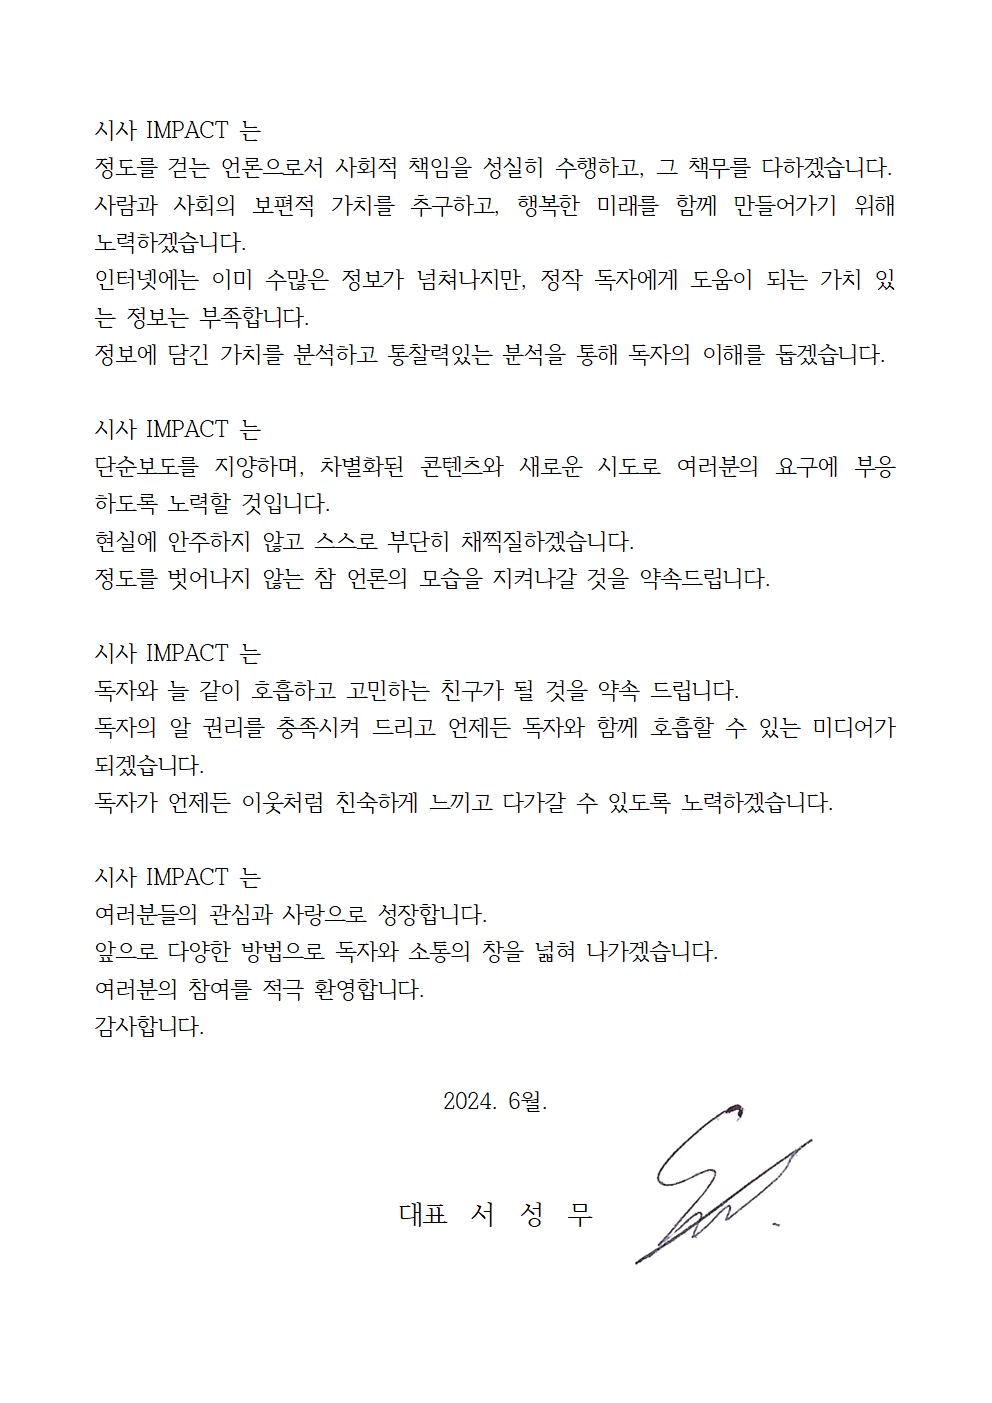 시사 IMPACT 는
정도를 걷는 언론으로서 사회적 책임을 성실히 수행하고, 그 책무를 다하겠습니다.
사람과 사회의 보편적 가치를 추구하고, 행복한 미래를 함께 만들어가기 위해
노력하겠습니다.
인터넷에는 이미 수많은 정보가 넘쳐나지만, 정작 독자에게 도움이 되는 가치 있
는 정보는 부족합니다.
정보에 담긴 가치를 분석하고 통찰력있는 분석을 통해 독자의 이해를 돕겠습니다.
시사 IMPACT 는
단순보도를 지양하며, 차별화된 콘텐츠와 새로운 시도로 여러분의 요구에 부응
하도록 노력할 것입니다.
현실에 안주하지 않고 스스로 부단히 채찍질하겠습니다.
정도를 벗어나지 않는 참 언론의 모습을 지켜나갈 것을 약속드립니다.
시사 IMPACT 는
독자와 늘 같이 호흡하고 고민하는 친구가 될 것을 약속 드립니다.
독자의 알 권리를 충족시켜 드리고 언제든 독자와 함께 호흡할 수 있는 미디어가
되겠습니다.
독자가 언제든 이웃처럼 친숙하게 느끼고 다가갈 수 있도록 노력하겠습니다.
시사 IMPACT 는
여러분들의 관심과 사랑으로 성장합니다.
앞으로 다양한 방법으로 독자와 소통의 창을 넓혀 나가겠습니다.
여러분의 참여를 적극 환영합니다.
감사합니다.
2024. 6월.
대표 서 성 무